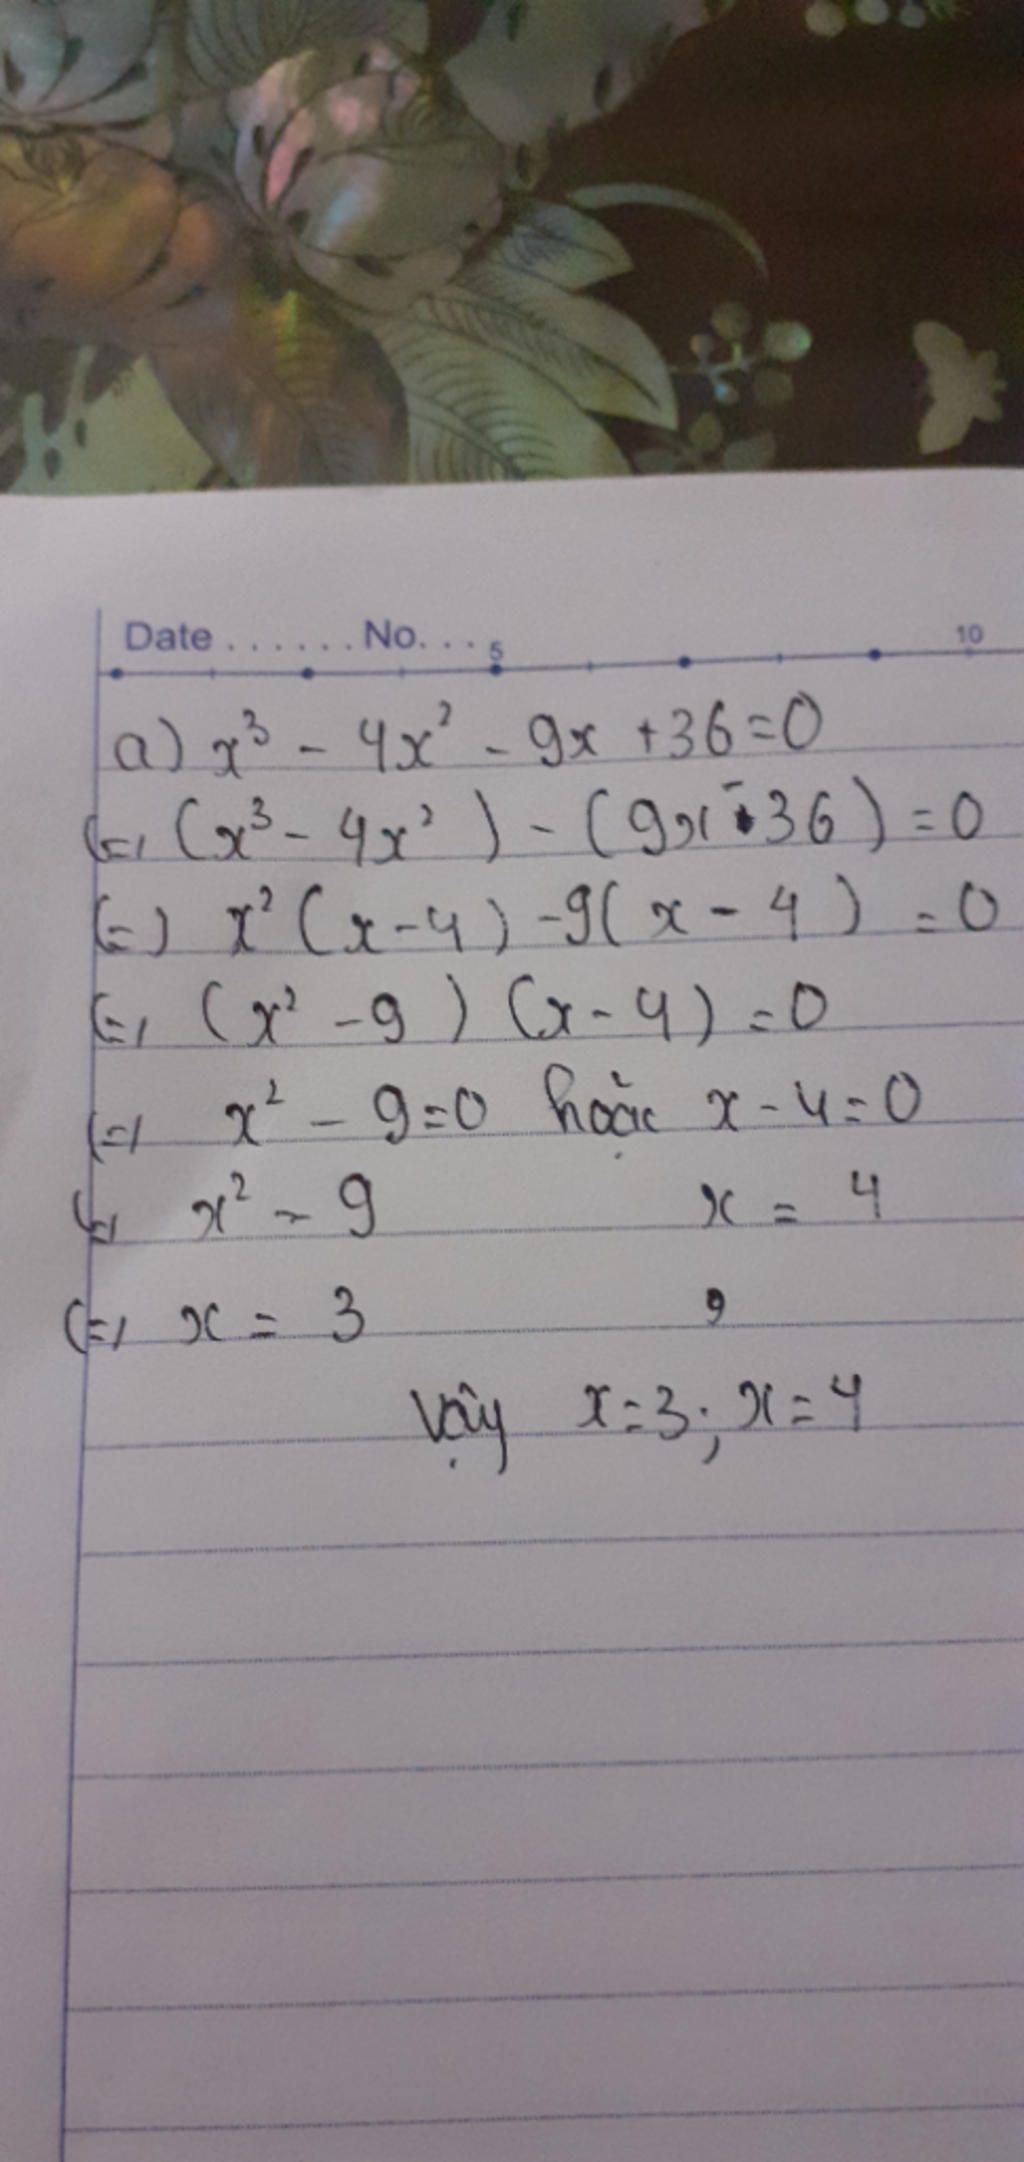 Date ...... No. ... 5 10
a) x³ - 4x² - 9x + 36 = 0
(=) (x³ - 4x²) - (9x - 36) = 0
(=) x² (x - 4) - 9( x - 4 ) = 0
(=) (x² - 9) (x - 4) = 0
(=) x² - 9 = 0 hoặc x - 4 = 0
(=) x² = 9 x = 4
(=) x = 3 ,
Vậy x = 3 ; x = 4